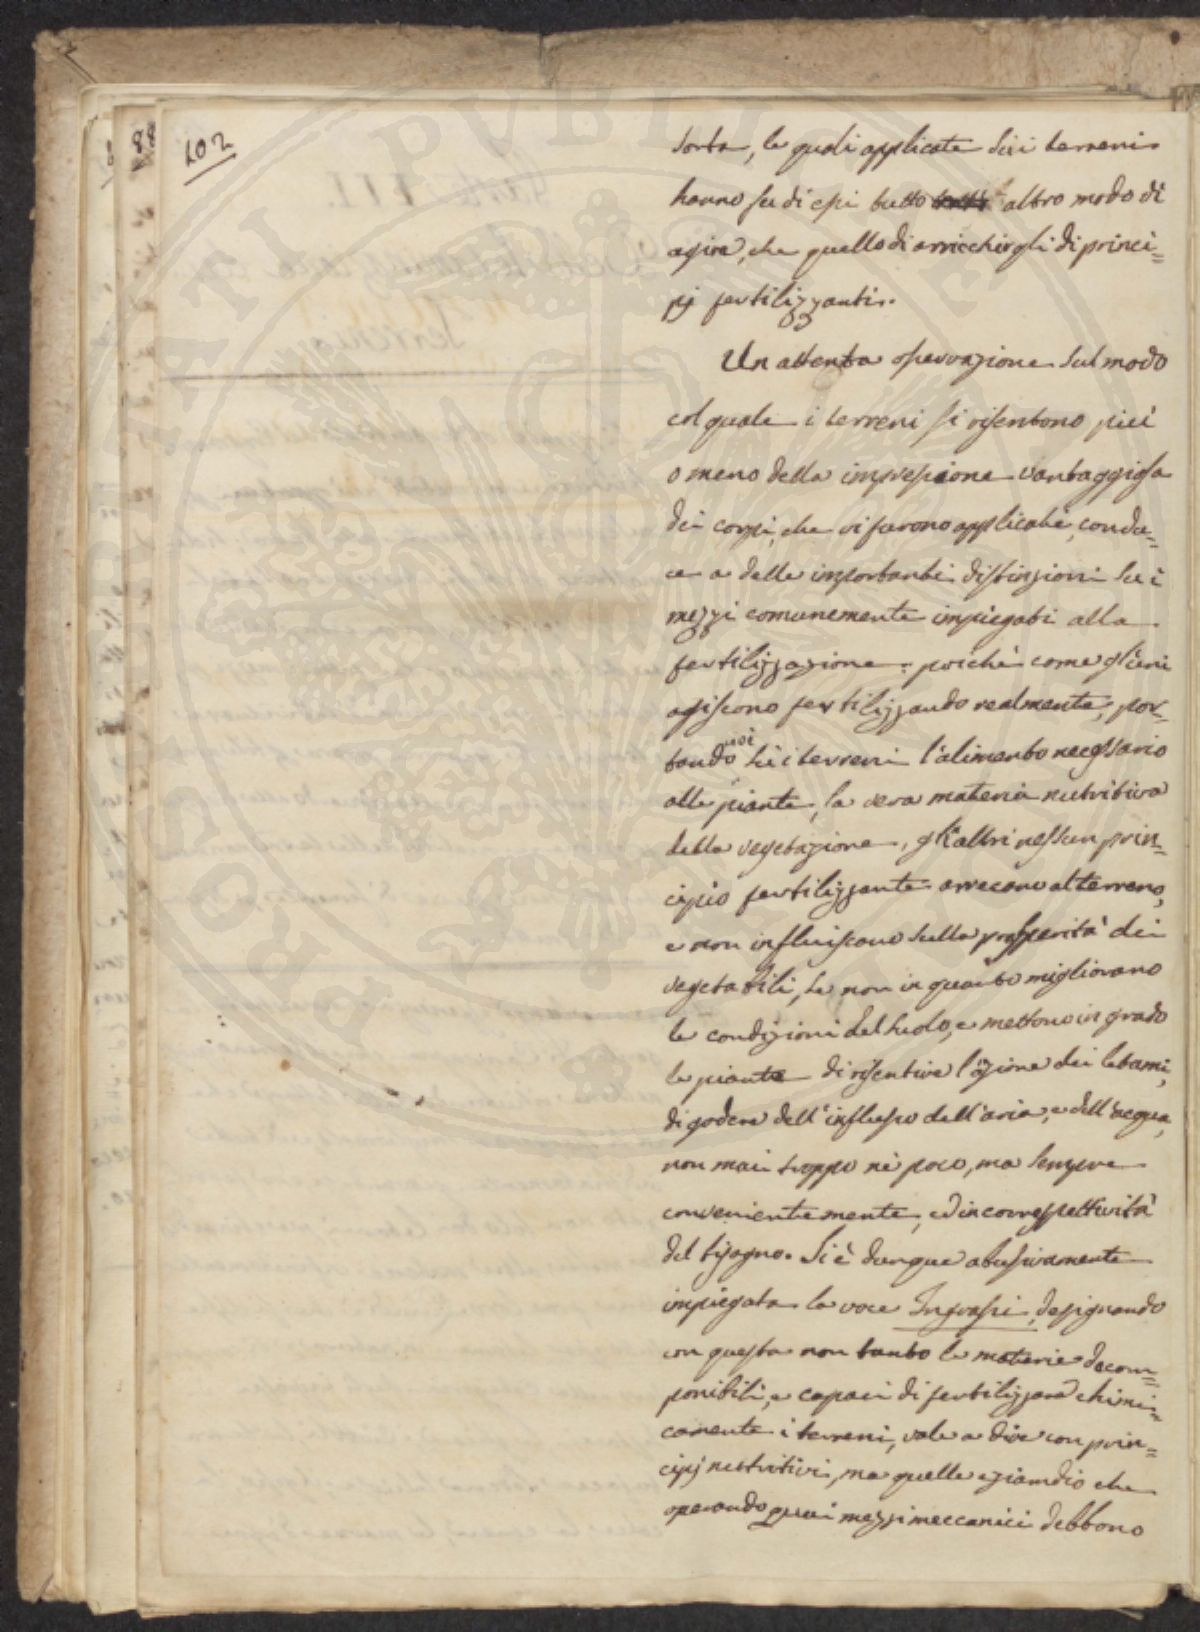 102
sorta, le quali applicate sù i terreni
hanno su di essi tutto altro modo di
agire, che quello di arricchirgli di princi=
pj fertilizzanti.
Un attenta osservazione sul modo
col quale i terreni si risentono più
o meno della impressione vantaggiosa
dei corpi, che vi furono applicati, condu=
ce a delle importanti distinzioni su i
mezzi comunemente impiegati alla
fertilizzazione: poichè come gl'uni
agiscono fertilizzando realmente, por=
tando sù i terreni l'alimento necessario
alle piante, la vera materia nutritiva
della vegetazione, gl'altri nessun prin=
cipio fertilizzante arrecano al terreno,
e non influiscono sulla prosperità dei
vegetabili, se non in quanto migliorano
le condizioni del suolo, e mettono in grado
le piante di risentire l'azione dei letami,
di godere dell'influsso dell'aria, e dell'acqua,
non mai troppo nè poco, ma sempre
convenientemente, ed in correspettività
del bisogno. Si è dunque abusivamente
impiegata la voce Ingrassi, designando
con questa non tanto le materie decom=
ponibili, e capaci di fertilizzare chimi=
camente i terreni, vale a dire con prin=
cipj nutritivi, ma quelle eziandio che
operando quai mezzi meccanici debbono
PVBLIC